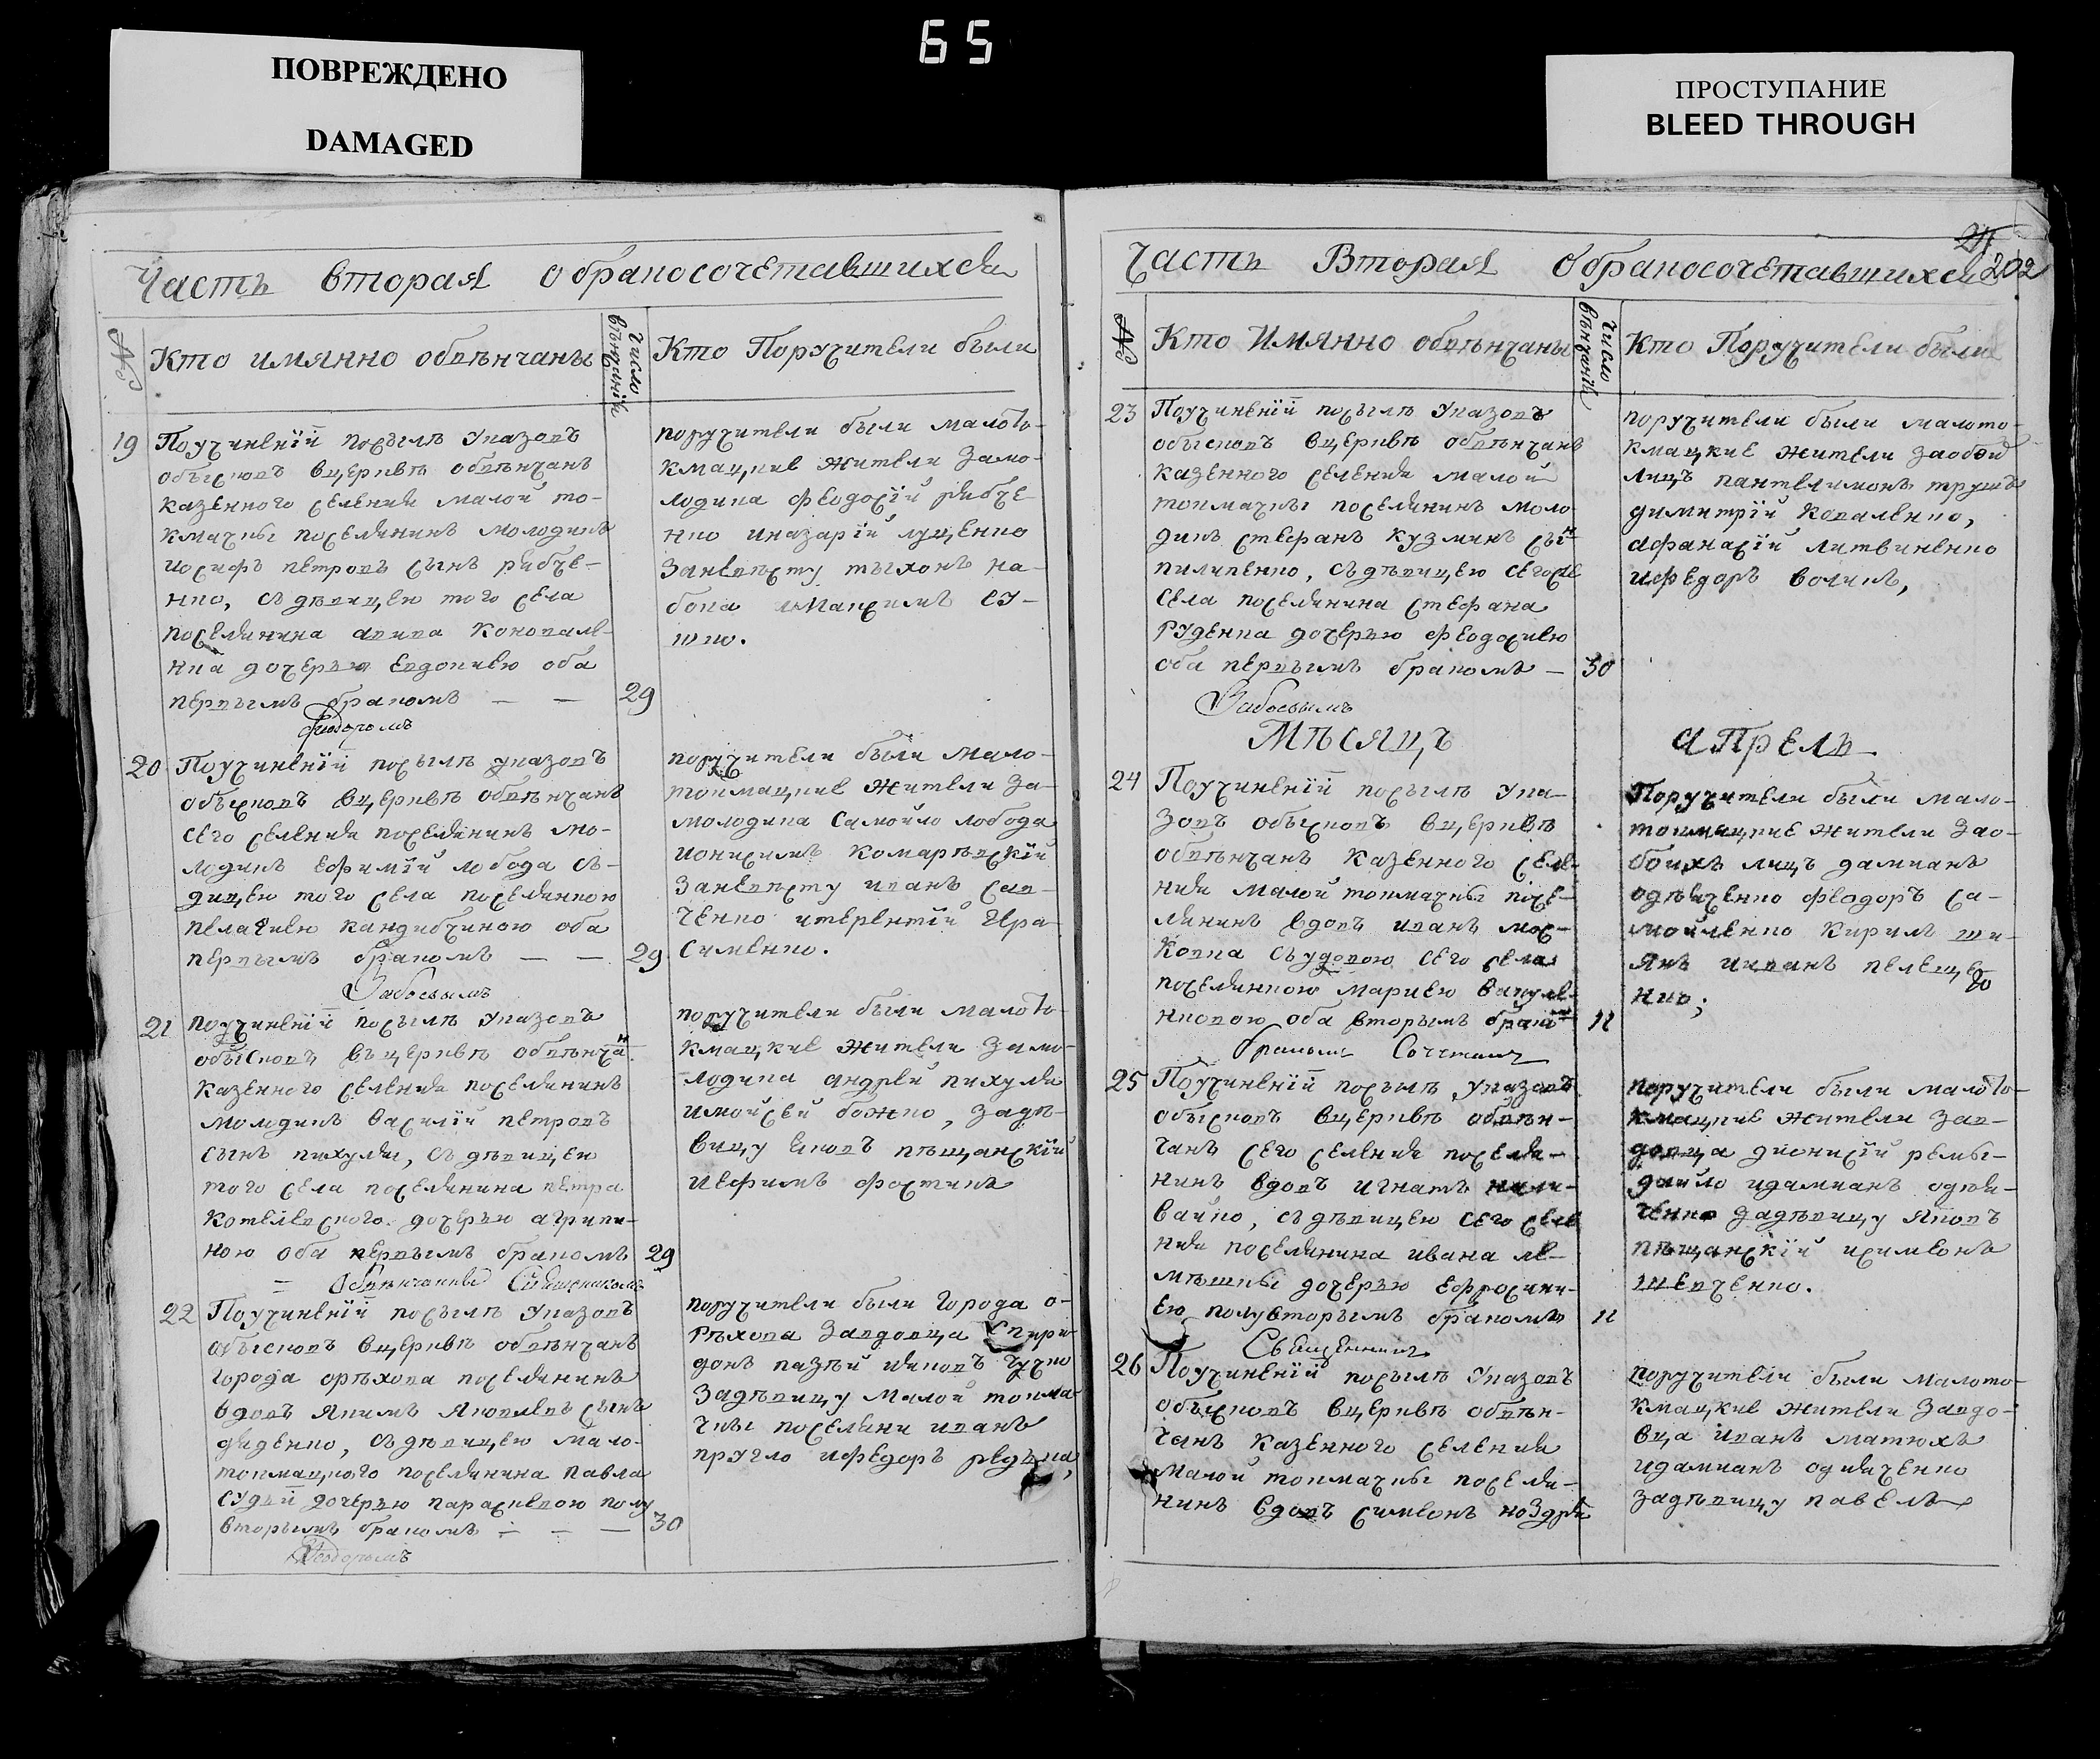 65
ПОВРЕЖДЕНО
DAMAGED
ПРОСТУПАНИЕ
BLEED THROUGH
Часть вторая обракосочетавшихся
№
Кто имянно обвѣнчаны
число вѣнчаній
Кто Поручители были
19
Поучиненїй посылѣ указовъ
обысковъ вцерквѣ обвѣнчанъ
казенного селения малой то-
кмачки поселянинъ молодикъ
иосифъ петровъ сынъ рябче-
нко, съ дѣвицею того села
поселянина авива Коновале-
нка дочерью евдокиею оба
первымъ бракомъ — —
29
Феодоромъ
поручители были малото-
кмацкие жители замо-
лодика феодосїй рябче
нко иназарїй луценко
заневѣсту тыхонъ на-
бока имаксимъ су-
шко.
20
Поучиненїй посылѣ указовъ
обысковъ вцерквѣ обвѣнчанъ
сего селения поселянинъ мо-
лодикъ ефимїй лобода съ-
дицею того села поселянкою
пелагиею кандибчиною оба
первымъ бракомъ — —
29
поручители были мало-
токмацкие жители за-
молодика самойло лобода
ионисимъ комарѣвскїй
заневѣсту иванъ сав-
ченко итерентїй гера-
сименко.
21
поучиненїй посылѣ указовъ
обысковъ въцерквѣ обвѣнчанъ
казенного селения поселянинъ
молодикъ василїй петровъ
сынъ пихуля, съ дѣвицею
того села поселянина петра
котелевского дочерью агрипи-
ною оба первымъ бракомъ
29
Обвѣнчанны Священикомъ
поручители были малото-
кмацкие жители замо-
лодика андрей пихуля
имойсей божко, задѣ-
вицу яковъ пѣщанскїй
иефимъ фостикъ
22
Поучиненїй посылѣ указовъ
обысковъ вцерквѣ обвѣнчанъ
города орѣхова поселянинъ
вдовъ якимъ яковлевъ сынъ
диденко, съ дѣвицею мало-
токмацкого поселянина павла
судьи дочерью параскевою полу
вторымъ бракомъ — — —
30
Феодоромъ
поручители были города о-
рѣхова завдовца спири-
донъ пазѣй ияковъ чучко
задѣвицу малой токма-
чки поселяни иванъ
кругло ифедоръ редька,
Часть Вторая Обракосочетавшихся
202
№
Кто Имянно обвѣнчаны
число вѣнчаній
Кто Поручители были
23
Поучиненїй посылѣ указовъ
обысковъ вцерквѣ обвѣнчанъ
казенного селения малой
токмачки поселянинъ моло
дикъ стефанъ кузминъ сынъ
пилипенко, съ дѣвицею сегоже
села поселянина стефана
руденка дочерью феодосиею
оба первымъ бракомъ —
30
поручители были малото-
кмацкие жители заобои
лицъ пантелимонъ трушъ
димитрїй коваленко,
афанасїй литвиненко
ифедоръ воликъ,
Мѣсяцъ
Апрель
24
Поучиненїй посылѣ ука-
зовъ обысковъ вцерквѣ
обвѣнчанъ казенного селе-
ния малой токмачки посе-
лянинъ вдовъ иванъ мос-
ковка съ удовою сего села
поселянкою мариею вакуле-
нковою оба вторымъ бракомъ
11
бракомъ Сочеталъ
Поручители были мало-
токмацкие жители зао-
боихъ лицъ дамианъ
одѣиченко феодоръ са-
мойленко кирилъ ши-
янъ ииванъ пелеще-
нко;
25
Поучиненїй посылѣ указовъ
обысковъ вцерквѣ обвѣн-
чанъ сего селения поселя-
нинъ вдовъ игнатъ нали-
вайко, съ дѣвицею сего селе
ния поселянина ивана ле-
мѣшки дочерью ефросини-
ею полувторымъ бракомъ
11
Священникъ
поручители были малото-
кмацкие жители зав-
довца дионисїй ремы-
дайло идамианъ одѣи-
ченко задѣвицу яковъ
пѣщанскїй исимеонъ
шевченко.
26
Поучиненїй посылѣ указовъ
обысковъ вцерквѣ обвѣн-
чанъ казенного селения
малой токмачки поселя-
нинъ вдовъ симеонъ ноздря
поручители были малото-
кмацкие жители завдо-
вца иванъ матюхъ
идамианъ одияченко
задѣвицу павелъ